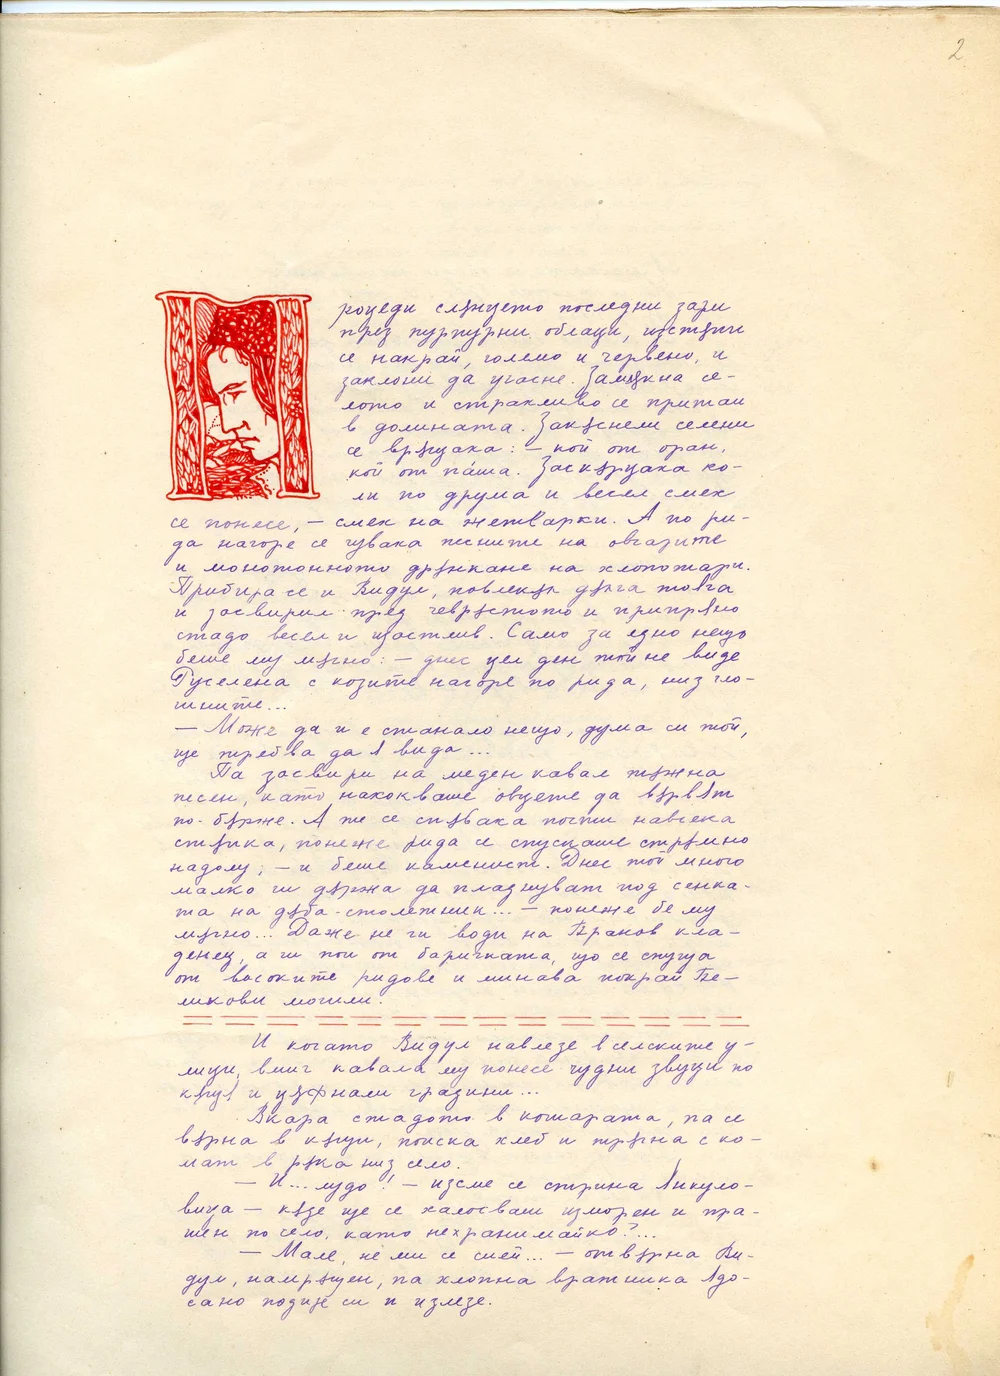 2
Процеди слѫнцето последни зари
през пурпурни облаци, изстѫпи
се накрай, големо и червено, и
заклони да угасне. Замѫкна се-
лото и страхливо се притаи
в долината. Закѫснели селени
се врѫщаха: — кой от оран,
кой от па́ша. Заскѫрцаха ко-
ли по друма и весел смех
се понесе, — смех на жетварки. А по ри-
да нагоре се чуваха песните на овчарите
и монотонното дрѫнкане на хлопотари.
Прибира се и Видул, повлекѫл дѫлга тоѣга
и засвирил пред чеврѫстото и припрѣно
стадо весел и щастлив. Само за едно нещо
беше му мѫчно: — днес цел ден той не виде
Гуселена с козите нагоре по рида, низ гло-
гините...
— Може да и е станало нещо, дума си той,
ще требва да ѭ вида...
Па засвири на меден кавал тѫжна
песен, като нахокваше овцете да вѫрвѭт
по-бѫрже. А те се спѫваха почти навсека
стѫпка, понеже рида се спускаше стрѫмно
надолу; — и беше каменист. Днес той много
малко ги дѫржа да пладнуват под сенка-
та на дѫба-столетник... — понеже бе му
мѫчно... Даже не ги води на Вранов кла-
денец, а ги пои от баричката, що се спуща
от високите ридове и минава покрай Ве-
ликови могили.
И когато Видул навлезе в селските у-
лици, вмиг кавала му понесе чудни звуци по
кѫщѭ и цѫфнали градини...
Вкара стадото в кошарата, па се
вѫрна в кѫщи, поиска хлеб и трѫгна с ко-
мат в рѫка низ село.
— И... лудо! — изсме се стрина Ѭнкуло-
вица — кѫде ще се халосваш изморен и пра-
шен по село, като нехранимайко?...
— Мале, не ми се смей... — отвѫрна Ви-
дул, намрѫщен, па хлопна вратника ѭдо-
сано подире си и излезе.